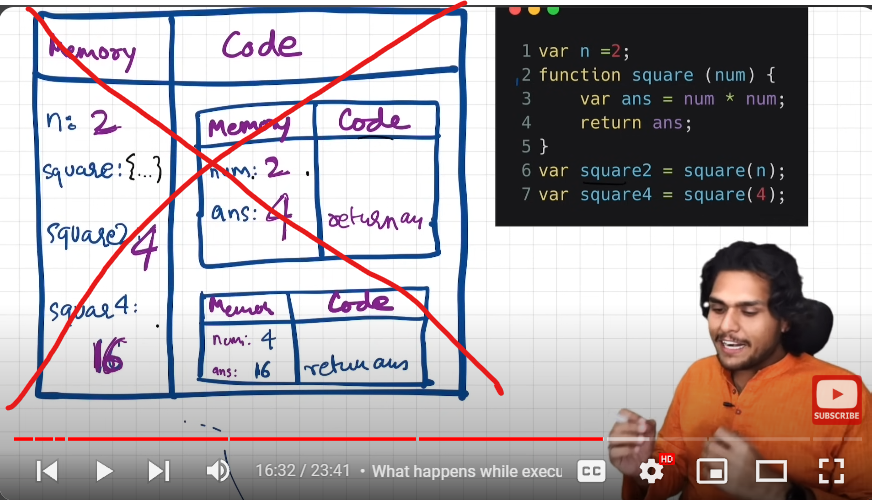 Memory
Code
n: 2
square:{...}
square2
4
squar4:
16
Memory
Code
num: 2
ans: 4
return an
Code
num: 4
ans: 16
return ans
1 var n =2;
2 function square (num) {
3 var ans = num * num;
4 return ans;
5 }
6 var square2 = square(n);
7 var square4 = square(4);
SUBSCRIBE
16:32 / 23:41 • What happens while execu
CC
HD